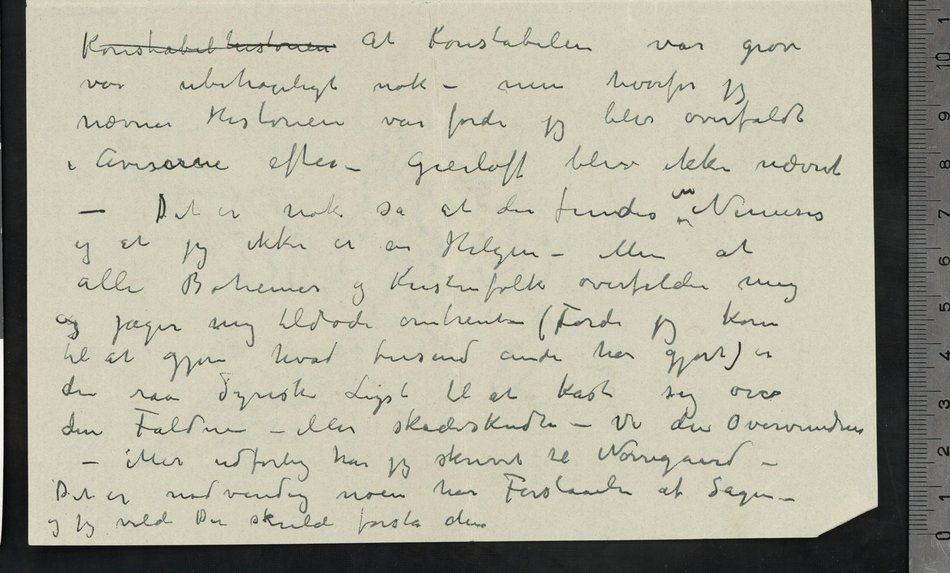 Konstabelhistorien At Konstabelen var grov
var ubehageligt nok – men hvorfor jeg
nævner Historien var fordi jeg blev overfaldt
i Aviserne efter – Gierløff blev ikke nævnt
– Det er nok så at der findes en Nemesis
og at jeg ikke er en Helgen – Men at
alle Bohemer og Kristenfolk overfalder mig
og jager mig tildøde omtrent – (Fordi jeg kom
til at gjøre hvad tusend andre har gjort) er
den raa Dyriske Lyst til at kaste sig over
den Faldne – eller skadeskudte – Ve den Overvundne
– Mer udførlig har jeg skrevet til Nørregaard –
Det er nødvendig noen har Forstaaelse af Sagen –
og jeg vilde De skulde forstå den